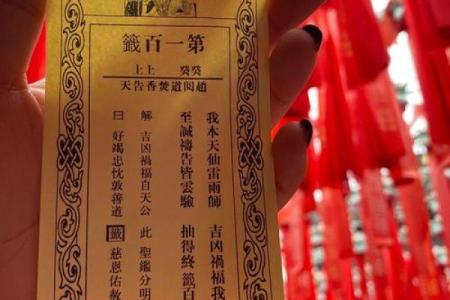 第一百籤
癸癸 上上
趙閱道焚香告天
我本天仙雷雨師 吉凶禍福我
至誠禱告皆雲驗 抽得終籤百
解 吉凶禍福自天公 此聖鑑分明
曰 好竭忠忱敦善道 籤 慈恩佑